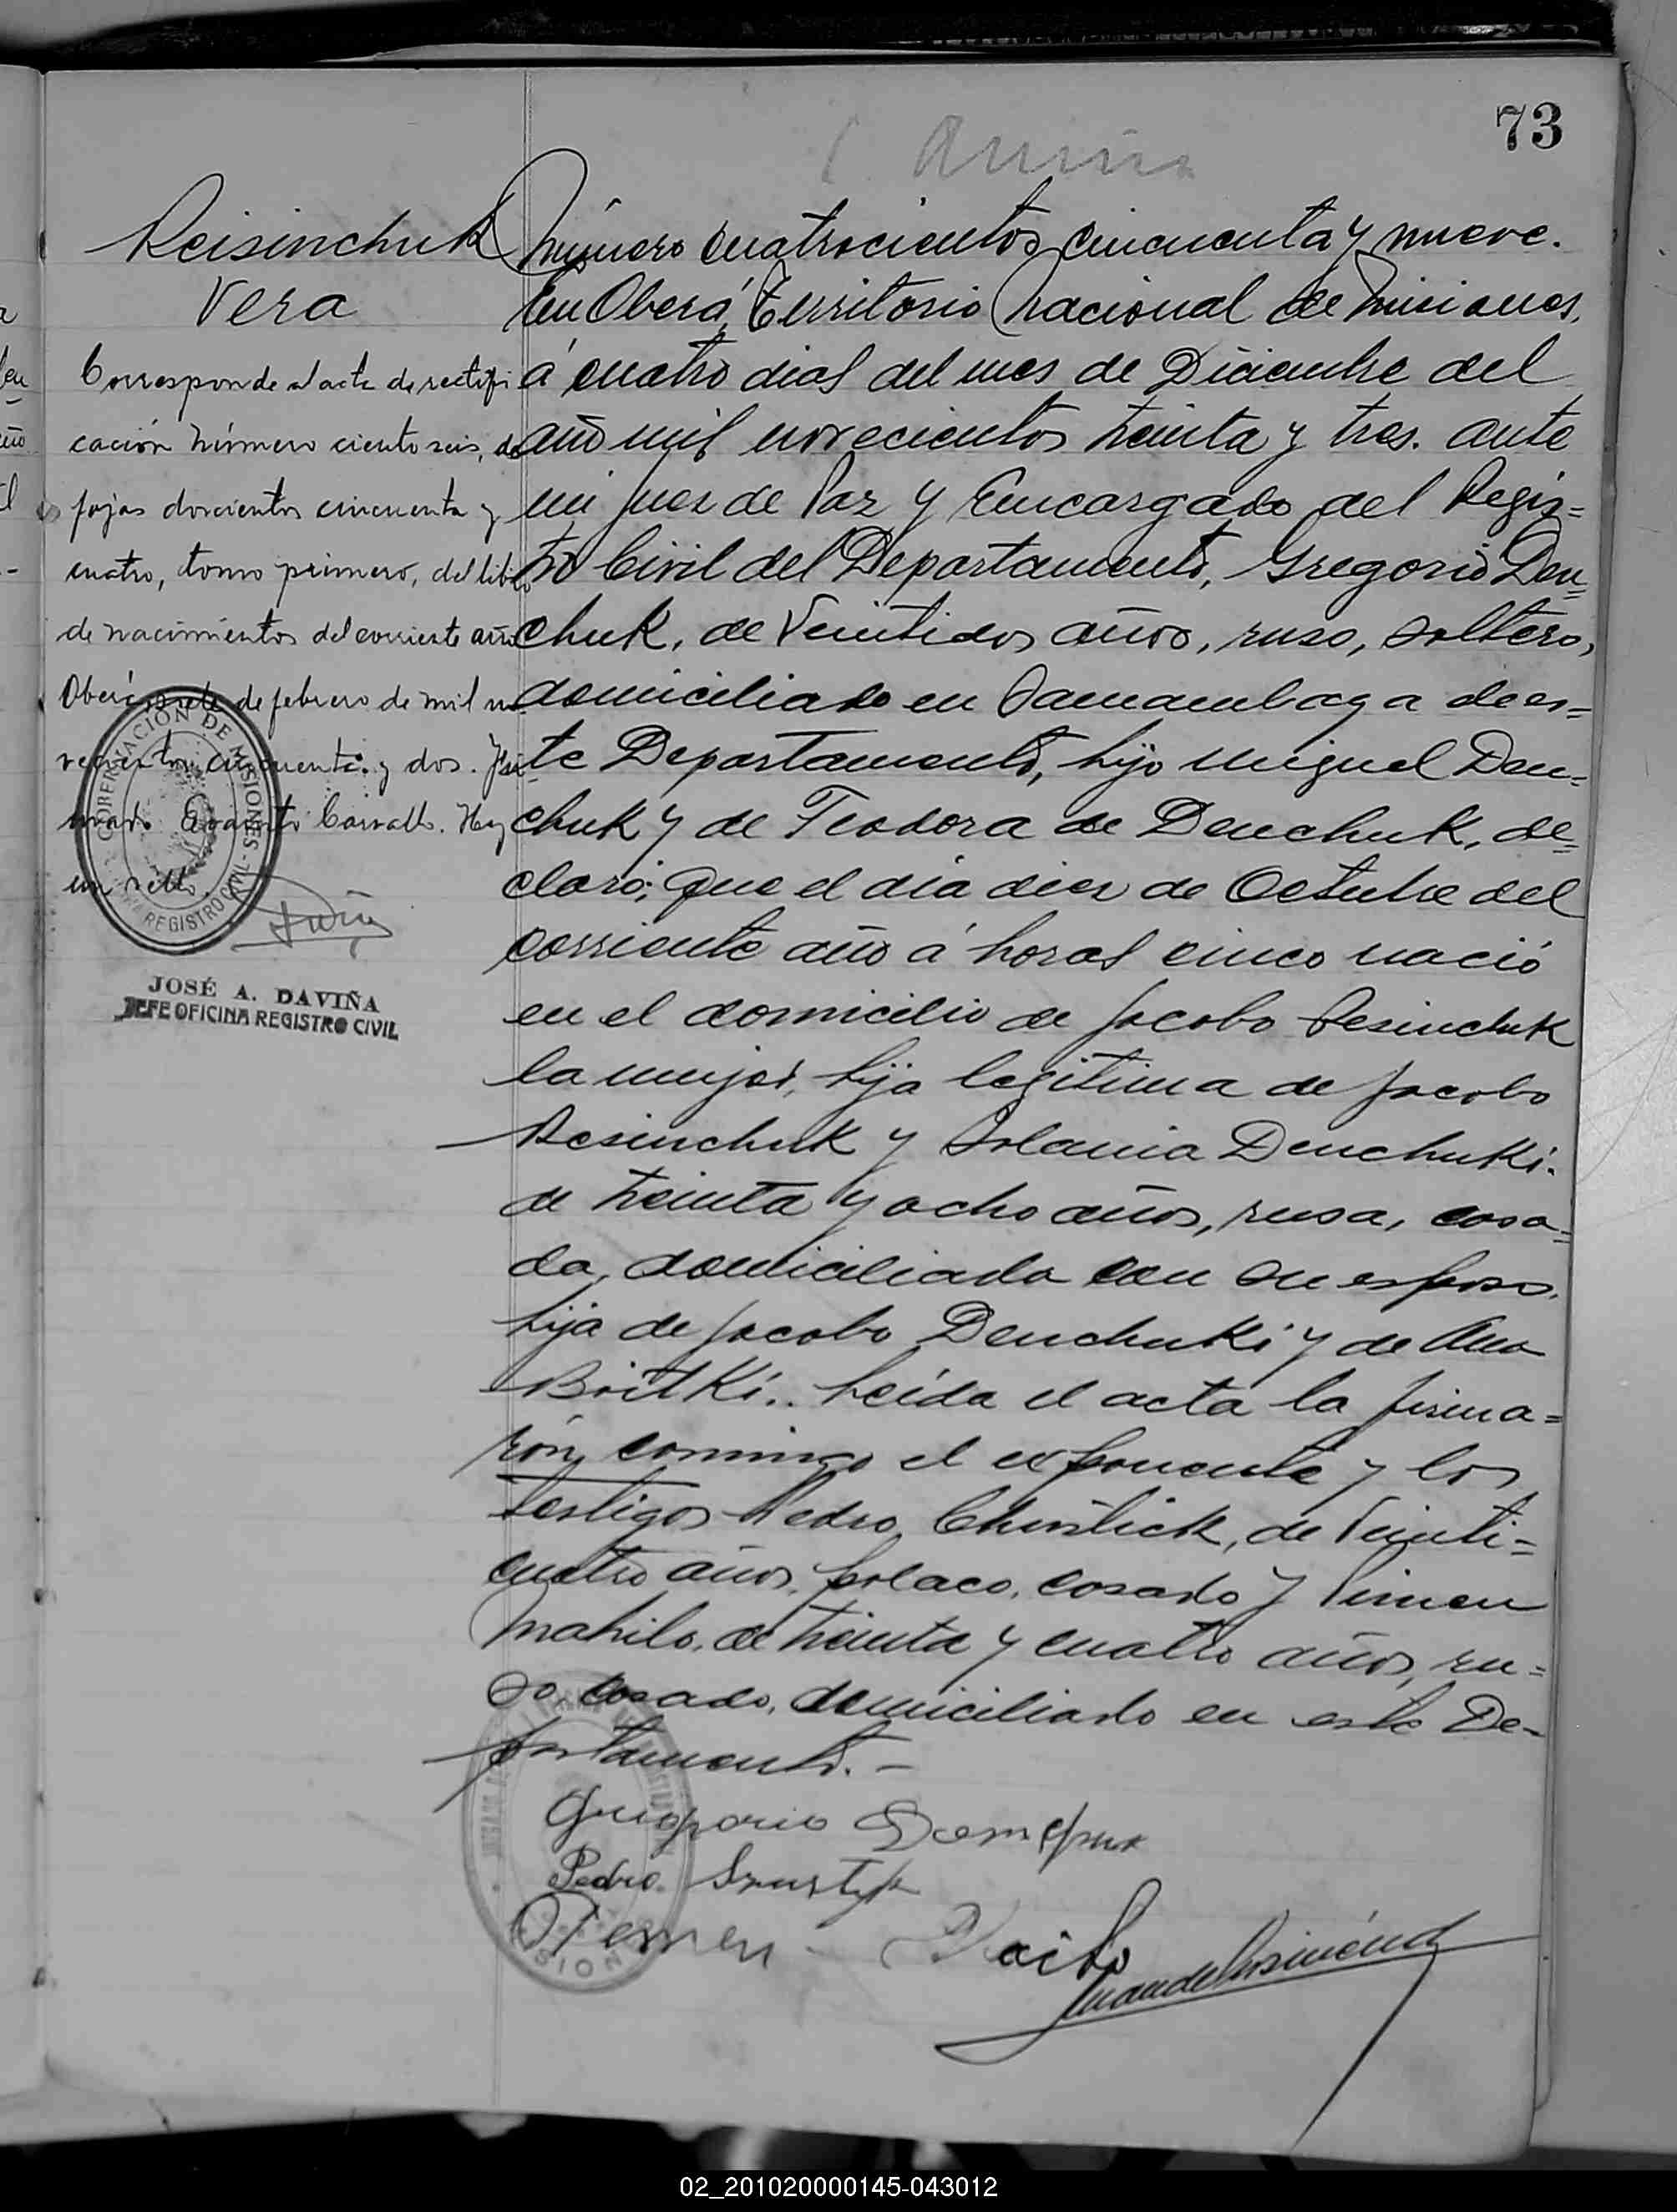 73
Reisinchuk
Vera
Corresponde al acta de rectifi
cación número ciento seis, de
fojas doscientos cincuenta y
cuatro, tomo primero, del libro
de nacimientos del corriente año
Oberá, de febrero de mil no
vecientos cincuenta y dos.
Evaristo Carvallo. Hay
un sello.
GOBERNACIÓN DE MISIONES
REGISTRO CIVIL
JOSÉ A. DAVIÑA
JEFE OFICINA REGISTRO CIVIL
Número cuatrocientos cincuenta y nueve.
En Oberá, Territorio Nacional de Misiones,
á cuatro dias del mes de Diciembre del
año mil novecientos treinta y tres. ante
mi Juez de Paz y Encargado del Regis=
tro Civil del Departamento, Gregorio Den=
chuk, de Veintidos años, ruso, soltero,
domiciliado en Samambaya de es=
te Departamento, hijo Miguel Den=
chuk y de Teodora de Denchuk, de=
claró; Que el dia diez de Octubre del
corriente año á horas cinco nació
en el domicilio de Jacobo Resinchuk
la mujer, hija legitima de Jacobo
Resinchuk y Solania Denchuki.
de treinta y ocho años, rusa, casa=
da, domiciliada con su esposo,
hija de Jacobo Denchuki y de Ana
Boitki.. Leida el acta la firma=
rón conmigo el exponente y los
testigos Pedro Chustick, de Veinti=
cuatro años, polaco, casado y Pimen
Mahilo, de treinta y cuatro años, ru=
so, casado, domiciliado en este De=
partamento.-
Gregorio
Pedro Szustyk
Pemen